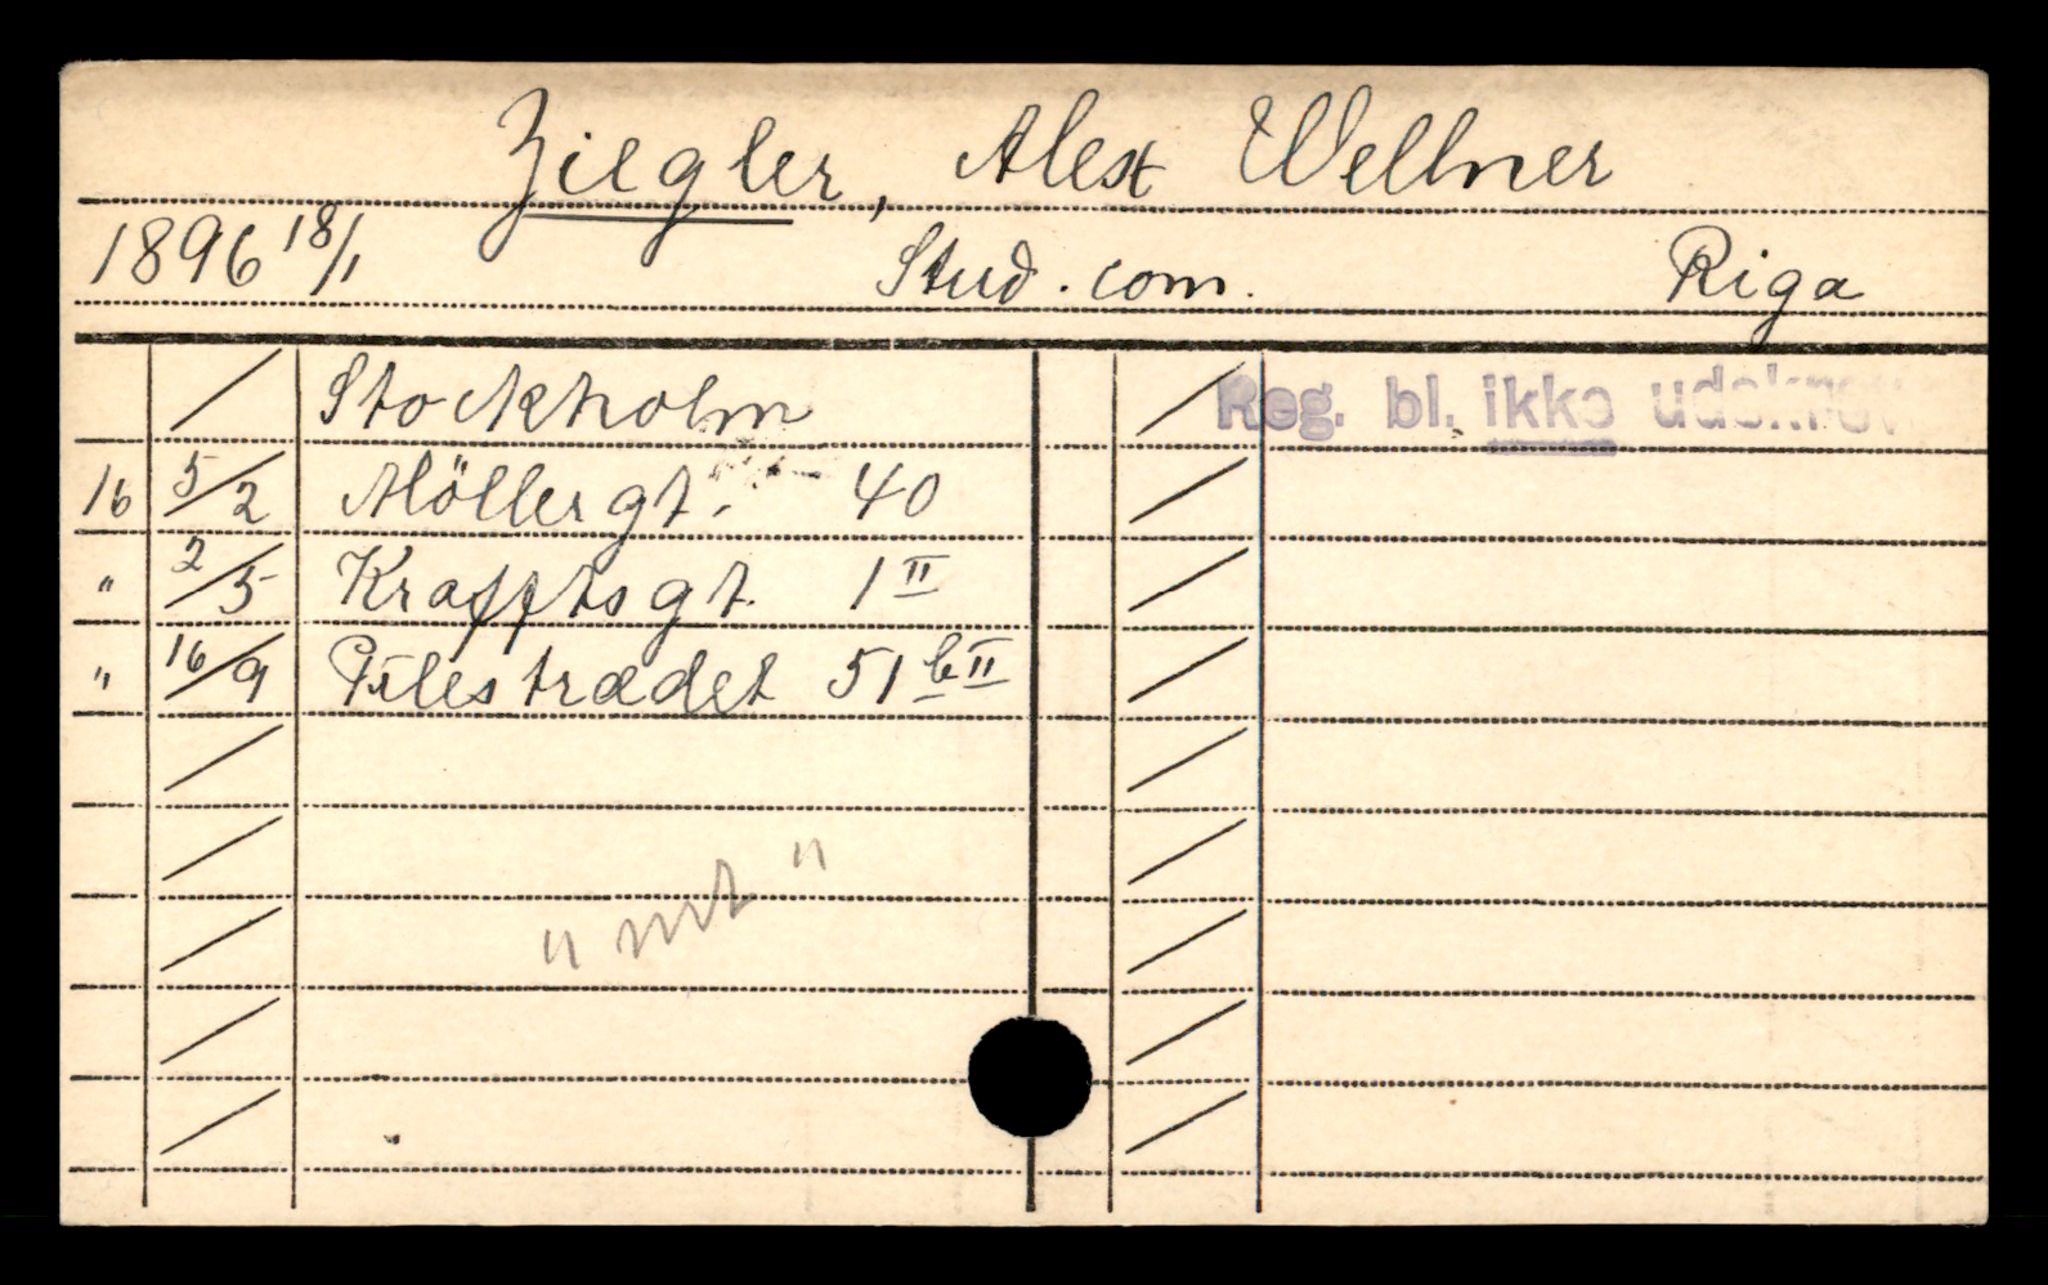 Ziegler, Alex Wellner
1896 18/1 Stud. com. Riga
Stockholm Reg. bl. ikke udskrev
16 5/2 Möllergt. 40
" 2/5 Krafftsgt. 1 II
" 16/9 Pilestrædet 51 b II